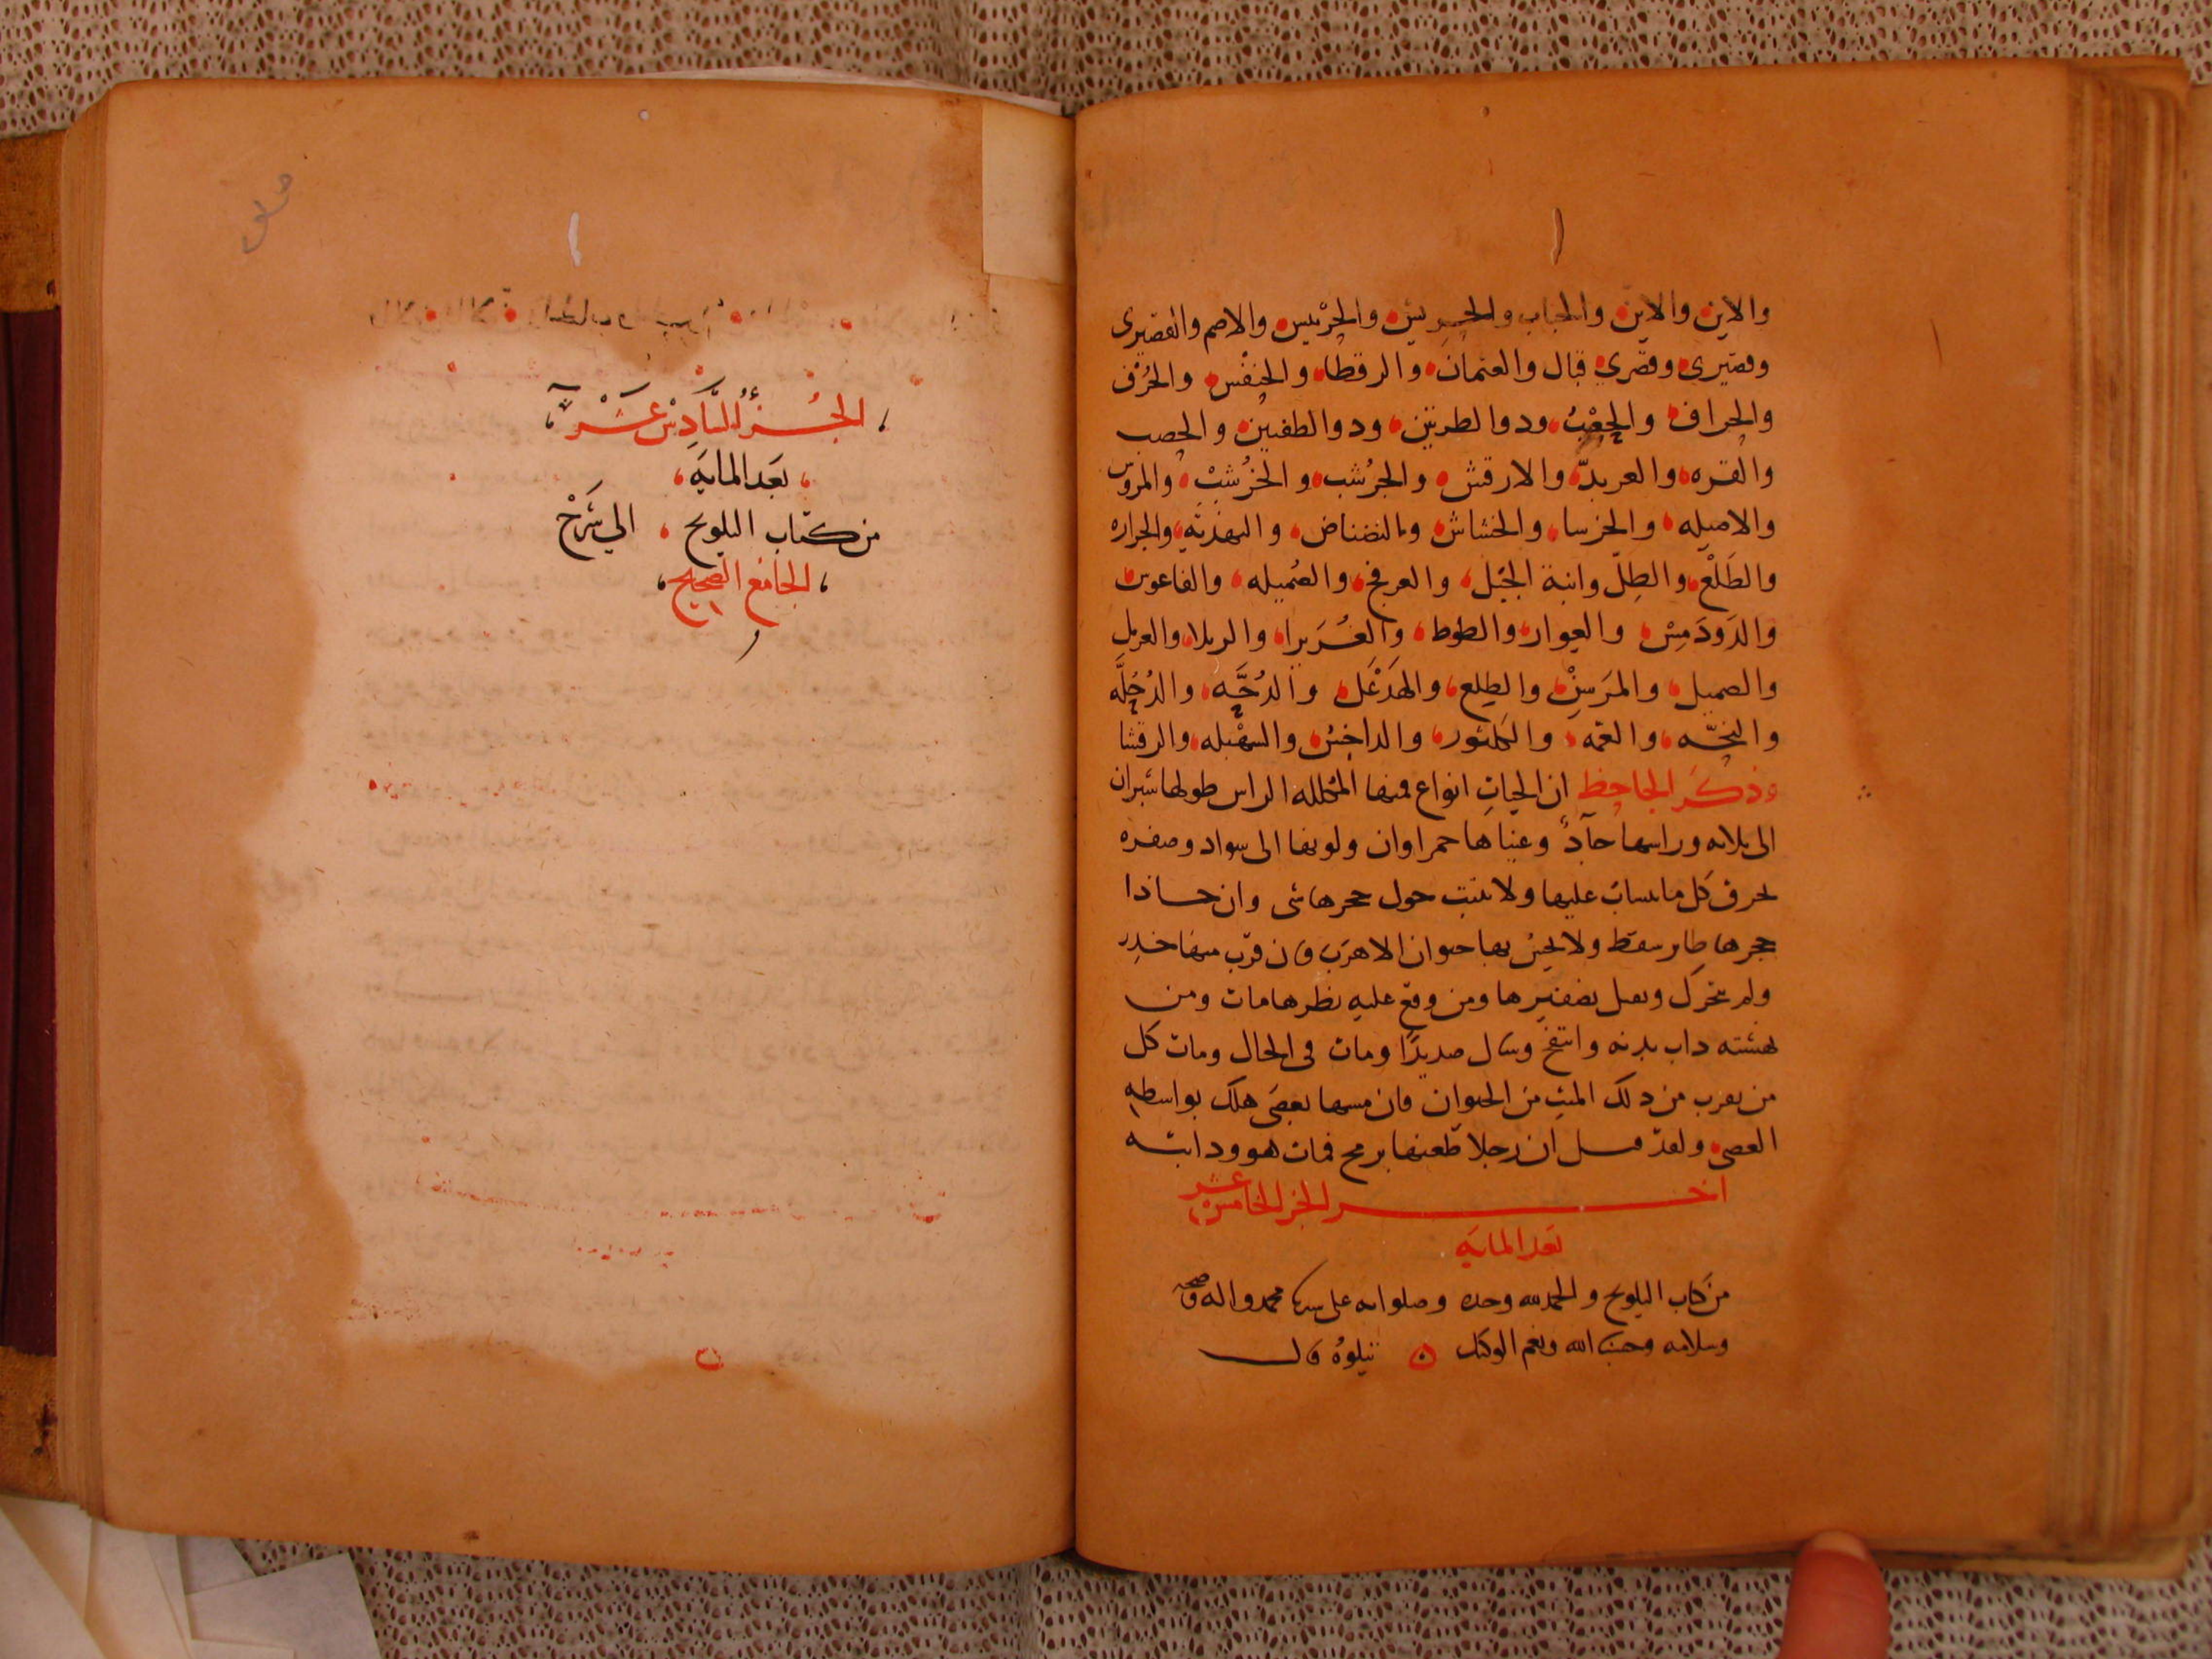 والاين والاين والحباب والحربش والحربيس والاصم والقصيرى
وقصيرى وقصرى قال والعثمان والرقطا والحنفس والحرف
والحراف والحصب ودوالطرتين ودوالطفيين والحصب
والقزه والعربد والارقش والجرشب والخرشب
والاصيله والخرسا والخشاش والنضناض والجراره
والطلع والطل وابنة الجبل والعرفج والصميله والفاعوس
والدودمس والعوار والطوط والربلا والعرىل
والصميل والمرسن والطلع والهدعل والدحه والدخله
والقمه والكلثور والداخس والسهبله والرقشا
وذكر الجاحظ ان الحيات انواع فمنها المكلله الراس طولها شبران
الى ثلاثه وراسها حاد وعيناها حمراوان ولونها الى سواد وصفره
تحرق كل ما تنساب عليها ولا ينبت حول جحرها شى وان حاذا
جحرها طاير سقط ولا يحس بها حيوان الا هرب فان قرب منها خدر
ولم يتحرك وتقتل بصفيرها ومن وقع عليه نظرها مات ومن
نهشته داب بدنه وانتفخ وسال صديدًا ومات فى الحال ومات كل
من يقرب من دلك الميت من الحيوان فان مسها بعصى هلك بواسطه
العصى ولقد قيل ان رجلا طعنها برمح فمات هو ودابته
اخر الجز الخامس عشر
بعد المايه
من كتاب التلويح والحمد لله وحده وصلواته على سيدنا محمد واله وصحبه
وسلامه وحسبنا الله ونعم الوكيل ن يتلوه قال
الجُزءُ السَّادِسْ عَشَرْ
بَعدَ المايَه
من كتاب التلويح الي شَرْحْ
الجامع الصحيح